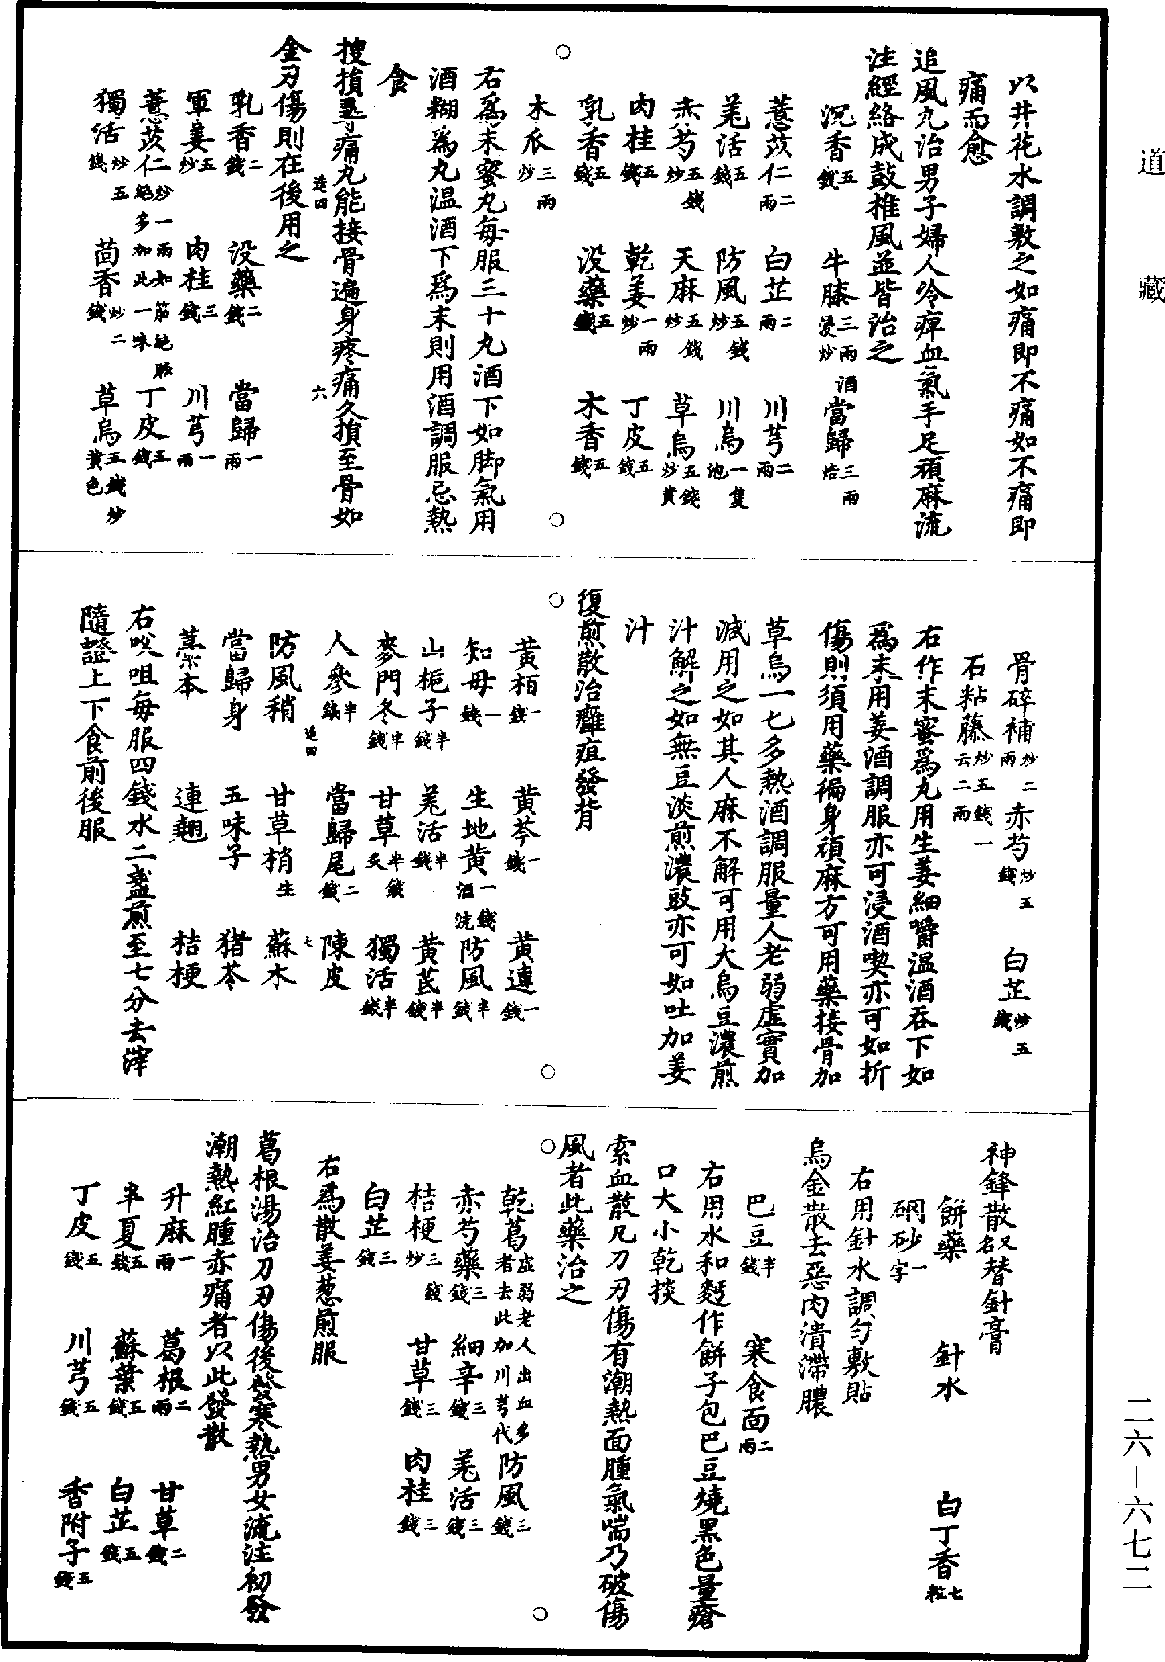 道藏
以井花水調敷之如痛即不痛如不痛即
痛而愈
追風丸治男子婦人冷痺血氣手足頑麻流
注經絡成鼓椎風並皆治之
沉香五錢 牛膝三兩酒浸炒 當歸三兩焙
薏苡仁二兩 白芷二兩 川芎二兩
羌活五錢 防風五錢炒 川烏一隻炮
赤芍五錢炒 天麻五錢炒 草烏五錢炒黄
肉桂五錢 乾姜一兩炒 丁皮五錢
乳香五錢 没藥五錢 木香五錢
木瓜三兩炒
右爲末蜜丸每服三十丸酒下如脚氣用
酒糊爲丸温酒下爲末則用酒調服忌熱
食
搜損尋痛丸能接骨遍身疼痛久損至骨如
金刃傷則在後用之
乳香二錢 没藥二錢 當歸一兩
軍姜五炒 肉桂三錢 川芎一兩
薏苡仁一兩如筋絶脉絶多加此一味二炒 丁皮五錢
獨活炒五錢 茴香炒二錢 草烏五錢炒黄色
骨碎補炒二兩 赤芍炒五錢 白芷炒五錢
石粘藤炒五錢一云二兩
右作末蜜爲丸用生姜細嚼温酒吞下如
爲末用姜酒調服亦可浸酒喫亦可如折
傷則須用藥徧身頑麻方可用藥接骨加
草烏一匕多熱酒調服量人老弱虚實加
減用之如其人麻不解可用大烏豆濃煎
汁解之如無豆淡煎濃豉亦可如吐加姜
汁
復煎散治癰疽發背
黄栢一錢 黄芩一錢 黄連一錢
知母一錢 生地黄一錢酒洗 防風半錢
山梔子半錢 羌活半錢 黄芪半錢
麥門冬半錢 甘草半錢炙 獨活半錢
人參半錢 當歸尾二錢 陳皮
防風稍 甘草梢生 蘇木
當歸身 五味子 猪苓
藁本 連翹 桔梗
右㕮咀每服四錢水二盞煎至七分去滓
隨證上下食前後服
神鋒散又名替針膏
餅藥 針水 白丁香七粒
硇砂一字
右用針水調勻敷貼
烏金散去惡肉潰滯膿
巴豆半錢 寒食面二兩
右用水和麪作餅子包巴豆燒黑色量瘡
口大小乾掞
索血散凡刀刃傷有潮熱面腫氣喘乃破傷
風者此藥治之
乾葛虚弱老人出血多者去此加川芎代 防風三錢
赤芍藥三錢 細辛三錢 羌活三錢
桔梗三錢炒 甘草三錢 肉桂三錢
白芷三錢
右爲散姜葱煎服
葛根湯治刀刃傷後發寒熱男女流注初發
潮熱紅腫赤痛者以此發散
升麻一兩 葛根二兩 甘草二錢
半夏五錢 蘇葉五錢 白芷五錢
丁皮五錢 川芎五錢 香附子五錢
二六—六七二